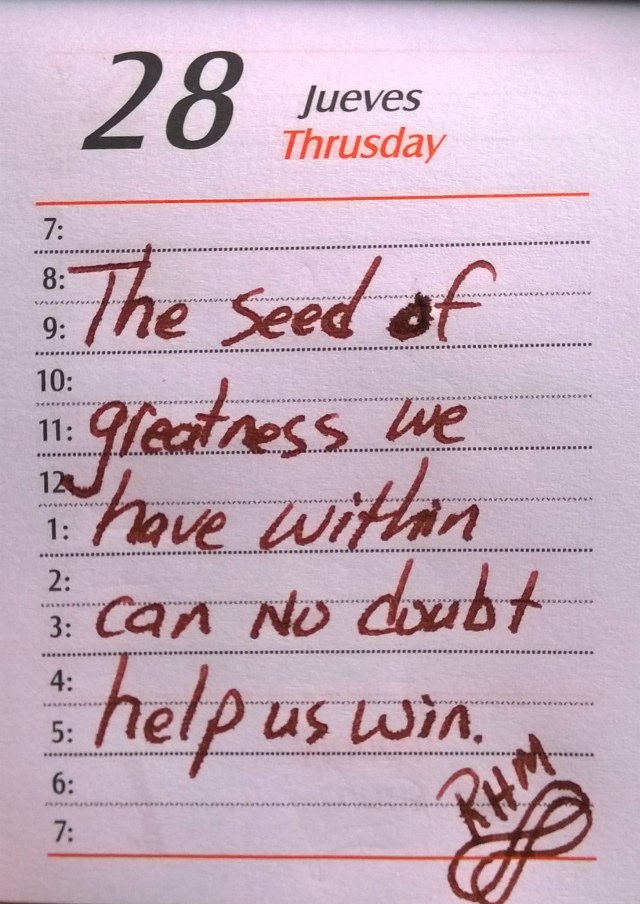 28 Jueves
Thrusday
7:
8:
The seed of
9:
10:
greatness we
11:
12
have within
1:
2:
can no doubt
3:
4:
help us win.
5:
6:
RHM
7: